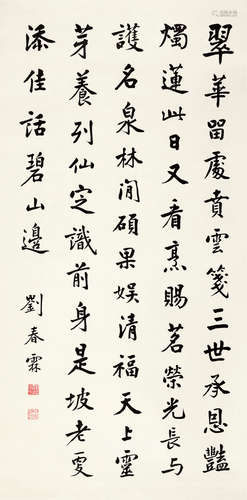 翠華留處賁雲箋三世承恩豔
燭蓮此日又看烹賜茗榮光長与
護名泉林閒碩果娛清福天上靈
芽養列仙定識前身是坡老更
添佳話碧山邊
劉春霖